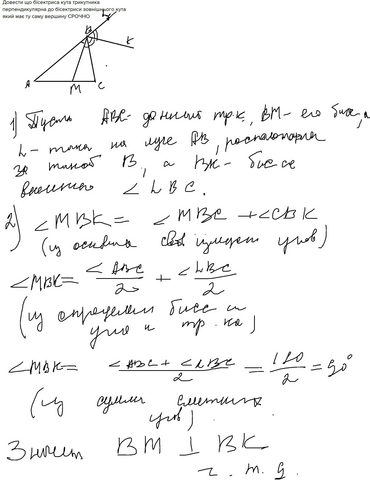 Довести що бісектриса кута трикутника
перпендикулярна до бісектриси зовнішнього кута
який має ту саму вершину СРОЧНО
L
B
K
A
M
C
1) Пусть ABC - данный тр.к, BM - его бисс, а
L - точка на луче AB,
за точкой B, а BK - бисса
внешнего ∠ LBC.
2) ∠MBK = ∠MBC + ∠CBK
(из основных измерен углов)
∠MBK = ∠ABC/2 + ∠LBC/2
(из определен бисс
угла и тр.ка)
∠MBK = ∠ABC + ∠LBC/2 = 180/2 = 90°
(из суммы смежных
углов)
Значит BM ⊥ BK
ч. т. д.